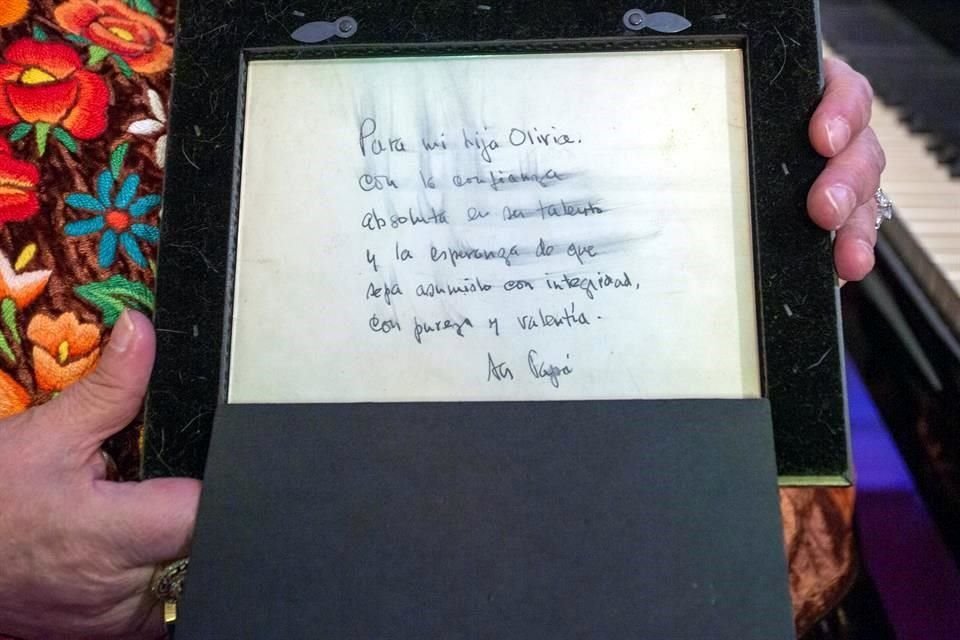 Para mi hija Olivia.
con la confianza
absoluta en su talento
y la esperanza de que
sepa asumirlo con integridad,
con pureza y valentía.
Su Papá